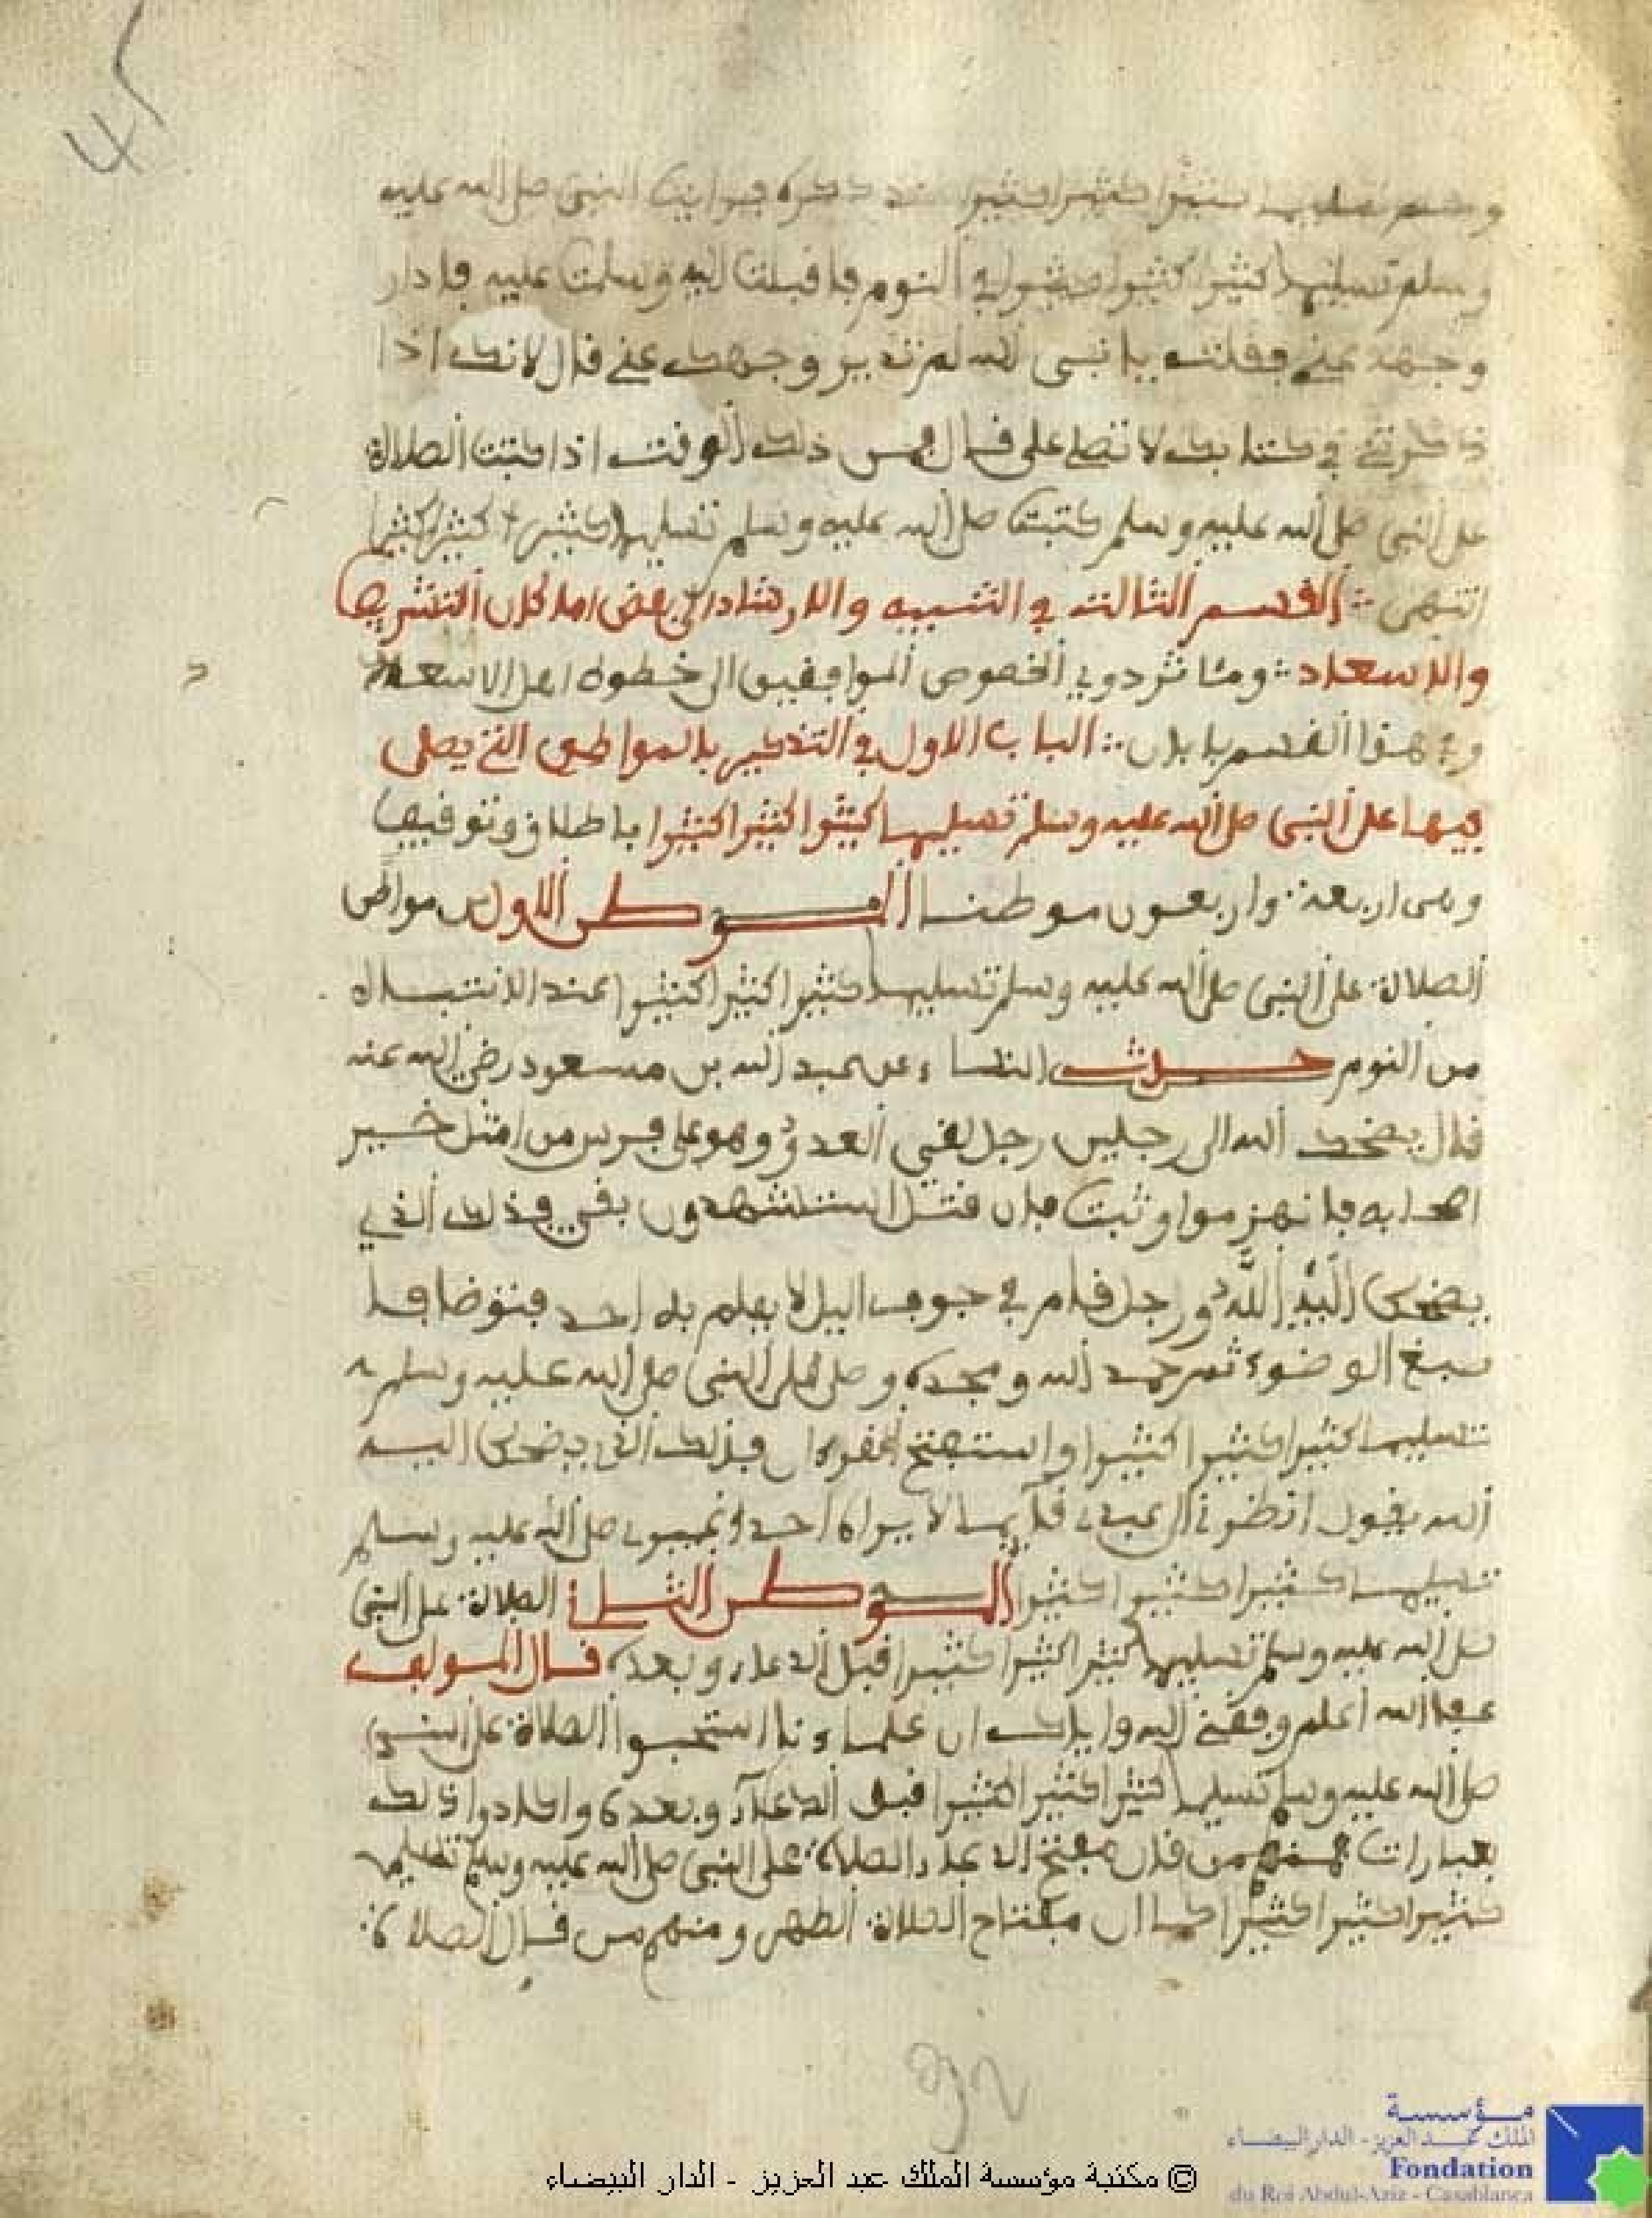 وسلم تسليما كثيرا كثيرا كثيرا عند ذكره فرايت النبي صلى الله عليه
وسلم تسليما كثيرا كثيرا كثيرا في النوم فاقبلت اليه وسلمت عليه فادار
وجهه عني فقلت يا نبي الله لم تدير وجهك عني قال لانك اذا
ذكرتني في كتابك لا تصلي علي قال فمن ذلك الوقت اذا كتبت الصلاة
على النبي صلى الله عليه وسلم كتبت صلى الله عليه وسلم تسليما كثيرا كثيرا كثيرا
انتهى القسم الثالث في التنبيه والارشاد الى بعض اماكن التشريف
والاسعاد ومثابة دوي الخصوص الموافقين الى خطوة اهل الاسعاد
وفي هذا القسم بابان الباب الاول في التذكير بالمواطن التي يصلى
فيها على النبي صلى الله عليه وسلم تسليما كثيرا كثيرا كثيرا باطلاق وتوقيف
وهي اربعة واربعون موطنا الموطن الاول من مواطن
الصلاة على النبي صلى الله عليه وسلم تسليما كثيرا كثيرا كثيرا عند الانتباه
من النوم حديث النساءي عن عبد الله بن مسعود رضي الله عنه
قال يضحك الله الى رجلين رجل لقي العدو وهو على فرس من امثل خير
اصحابه فانهزموا وثبت فان قتل استشهد وان بقي فذلك الذي
يضحك اليه الله ورجل قام في جوف اليل لا يعلم به احد فتوضا فا
سبغ الوضوء ثم حمد الله ومجده وصلى على النبي صلى الله عليه وسلم
تسليما كثيرا كثيرا كثيرا واستفتح القرءان فذلك الذي يضحك اليه
الله يقول انظروا الى عبدي قايما لا يراه احد غيري صلى الله عليه وسلم
تسليما كثيرا كثيرا كثيرا الموطن الثاني الصلاة على النبي
صلى الله عليه وسلم تسليما كثيرا كثيرا كثيرا قبل الدعاء وبعده قال المولف
عفا الله اعلم وفقني الله واياك ان علماءنا استحبوا الصلاة على النبي
صلى الله عليه وسلم تسليما كثيرا كثيرا كثيرا قبل الدعاء وبعده وافادوا ذلك
بعبارات فمنهم من قال مفتح الدعاء الصلاة على النبي صلى الله عليه وسلم تسليما
كثيرا كثيرا كثيرا كما ان مفتاح الصلاة الطهر ومنهم من قال الصلاة
© مكتبة مؤسسة الملك عبد العزيز - الدار البيضاء
مؤسسة
الملك عبد العزيز - الدار البيضاء
Fondation
du Roi Abdul-Aziz - Casablanca